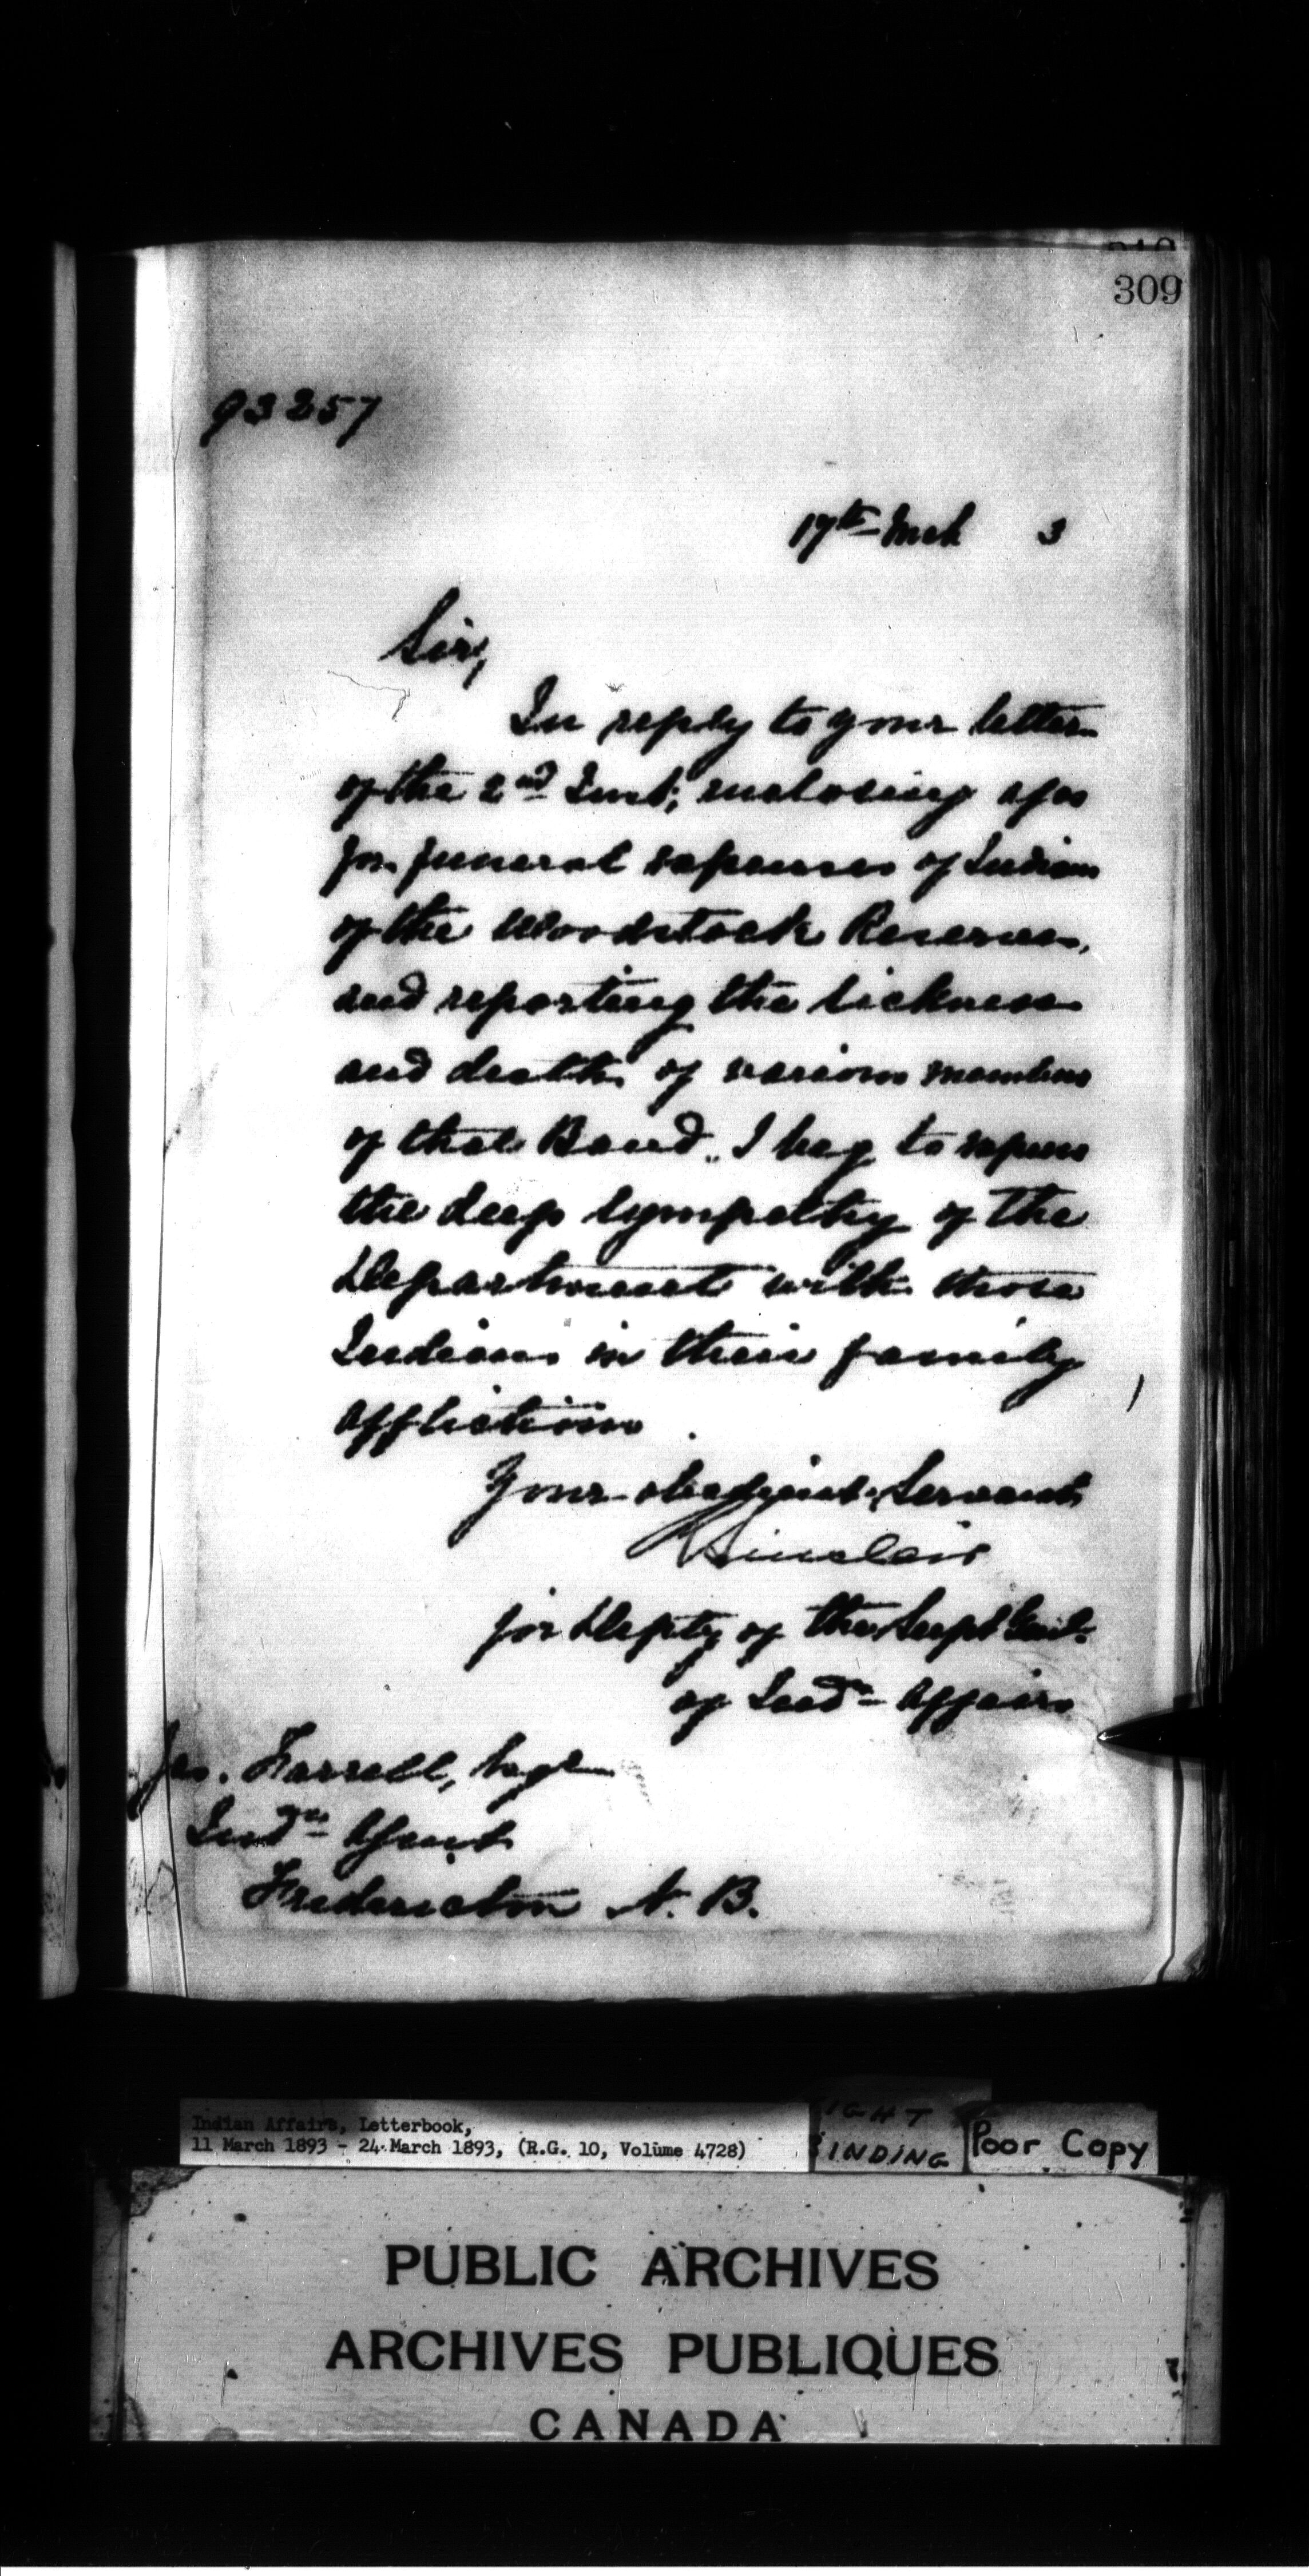 309
93257
17th Mch 3
Sir,
In reply to your letter
of the 2nd Inst; enclosing a/cs
for funeral expenses of Indians
of the Woodstock Reserve,
and reporting the sickness
and death of various members
of that Band, I beg to express
the deep sympathy of the
Department with those
Indians in their family
afflictions.
Your obedient Servant
Sinclair
for Depty of the Supt Genl.
of Indn Affairs
Jas. Farrell, Esqr
Indn Agent
Fredericton N. B.
Indian Affairs, Letterbook,
11 March 1893 - 24 March 1893, (R.G. 10, Volume 4728)
IGHT
BINDING
Poor Copy
PUBLIC ARCHIVES
ARCHIVES PUBLIQUES
CANADA